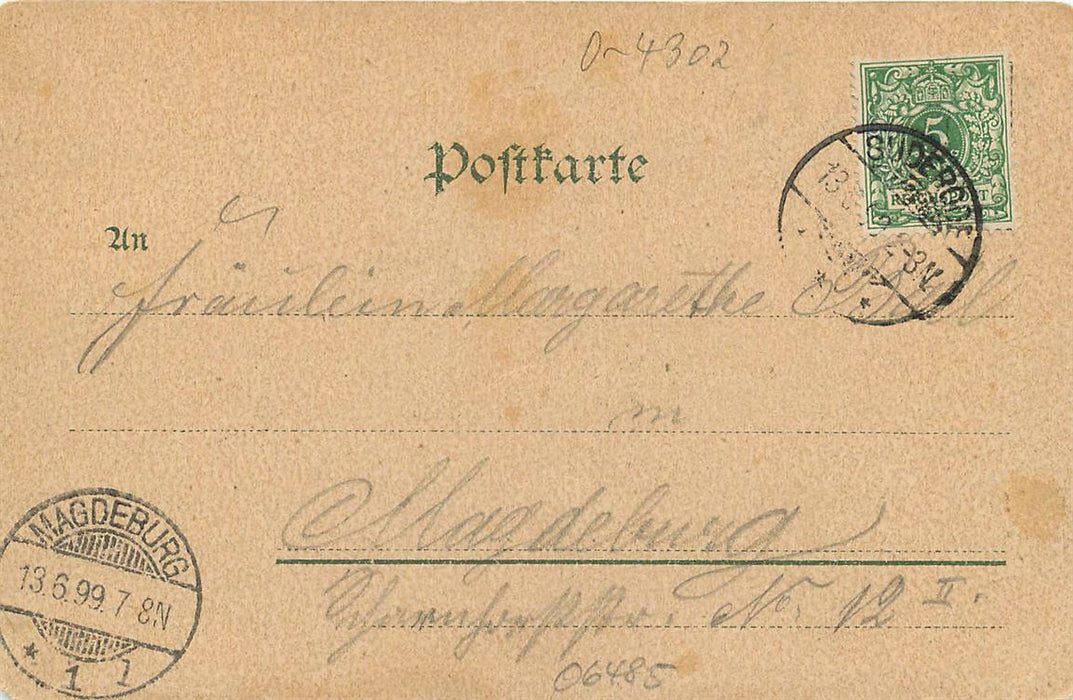 D-4302
Postkarte
5
REICHSPOST
SUDERODE
13 6 2-3N.
An
Fräulein Margarethe
in
Magdeburg
Scharnhorststr. No. 12 II.
MAGDEBURG
13.6.99.7-8N
* 1 1
06485